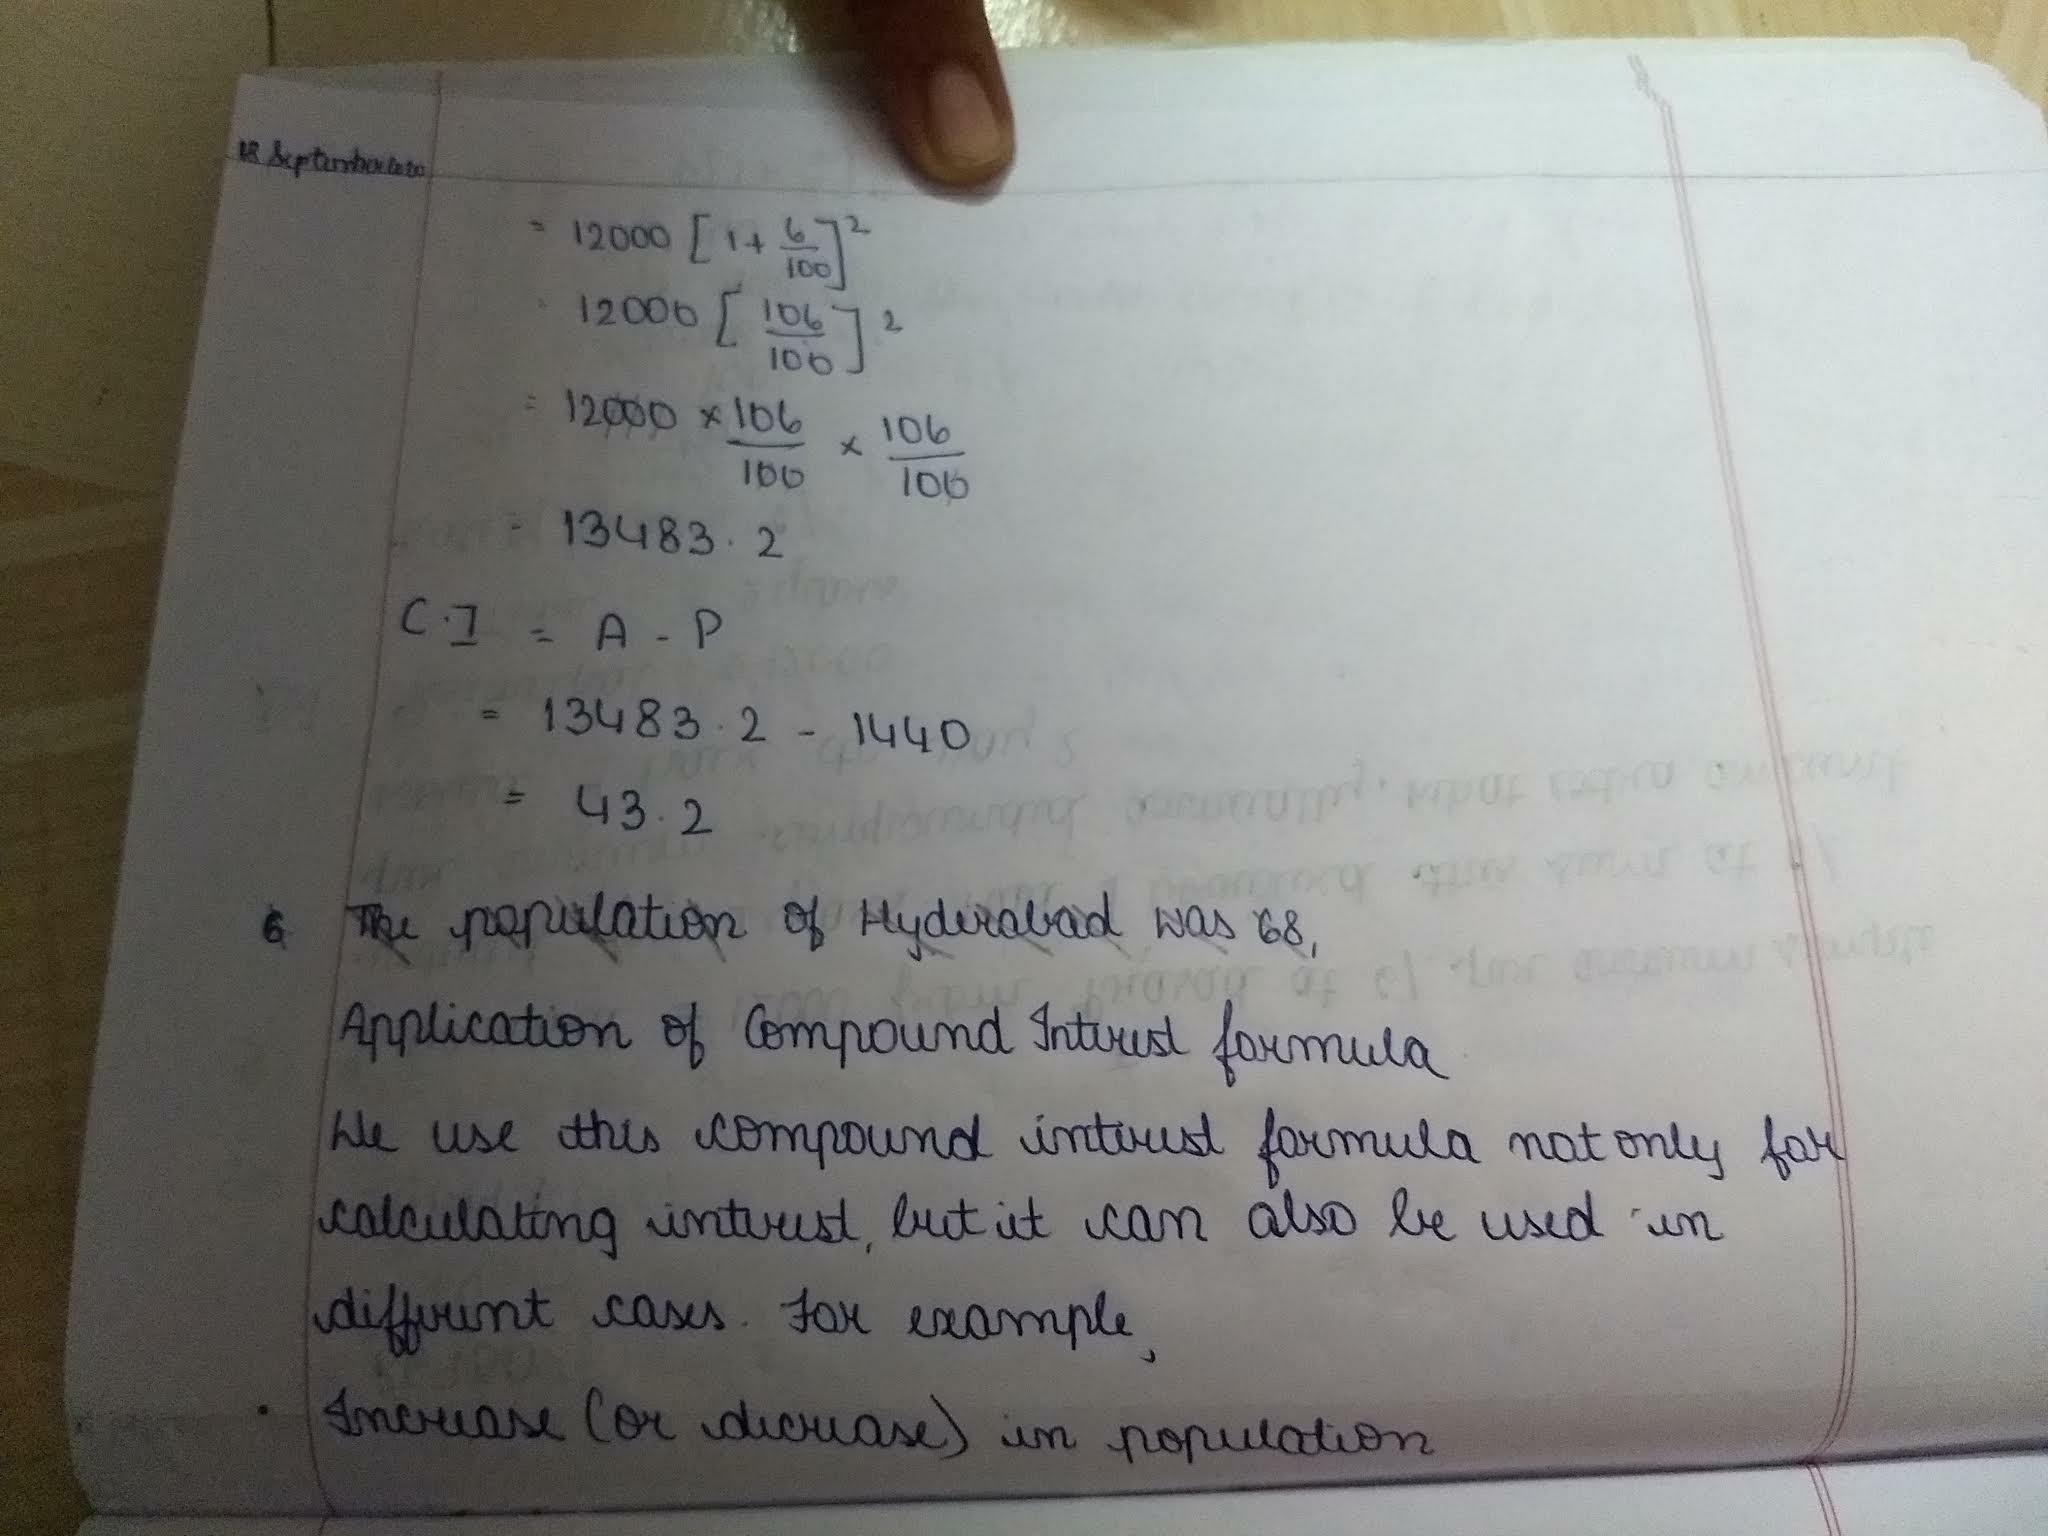 18 September 2020
= 12000 [1 + 6/100]²
12000 [106/100]²
= 12000 × 106/100 × 106/100
= 13483.2
C.I = A - P
= 13483.2 - 1440
= 43.2
6 The population of Hyderabad was 68,
Application of Compound Interest formula
We use this compound interest formula not only for
calculating interest, but it can also be used in
different cases. For example,
• Increase (or decrease) in population